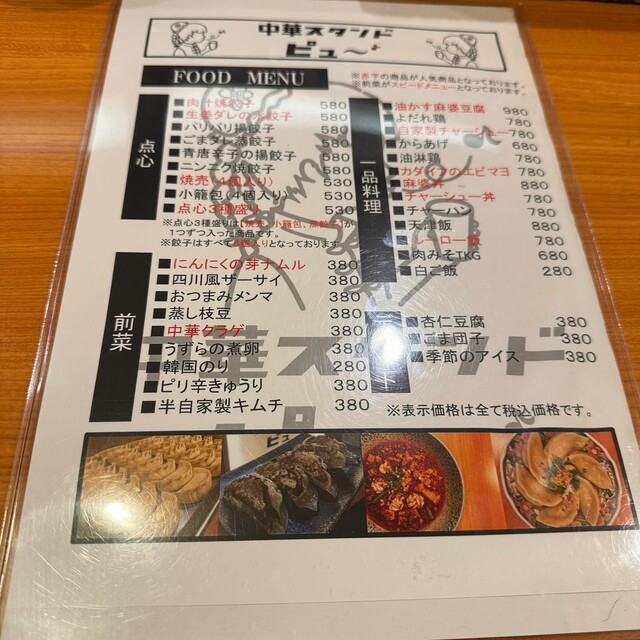 中華スタンド
ピュ〜♪
FOOD MENU
※赤字の商品が人気商品となっております。
※前菜がスピードメニューとなっております。
点心
■肉汁焼餃子 580
■生姜ダレの水餃子 580
■パリパリ揚餃子 580
■ごまダレ蒸餃子 580
■青唐辛子の揚餃子 580
■ニンニク焼餃子 580
■焼売(4個入り) 530
■小籠包(4個入り) 530
■点心3種盛り 530
※点心3種盛りは【焼売、小籠包、蒸餃子】が
1つずつ入った商品です。
※餃子はすべて 個入りとなっております
前菜
■にんにくの芽ナムル 380
■四川風ザーサイ 380
■おつまみメンマ 380
■蒸し枝豆 380
■中華クラゲ 380
■うずらの煮卵 380
■韓国のり 280
■ピリ辛きゅうり 380
■半自家製キムチ 380
一品料理
■油かす麻婆豆腐 980
■よだれ鶏 780
■自家製チャーシュー 780
■からあげ 680
■油淋鶏 780
■カダイフのエビマヨ 780
■麻婆丼 880
■チャーシュー丼 780
■チャーハン 780
■天津飯 780
■ルーロー飯 780
■肉みそTKG 680
■白ご飯 280
■杏仁豆腐 380
■ごま団子 380
■季節のアイス 380
※表示価格は全て税込価格です。
中華スタンド